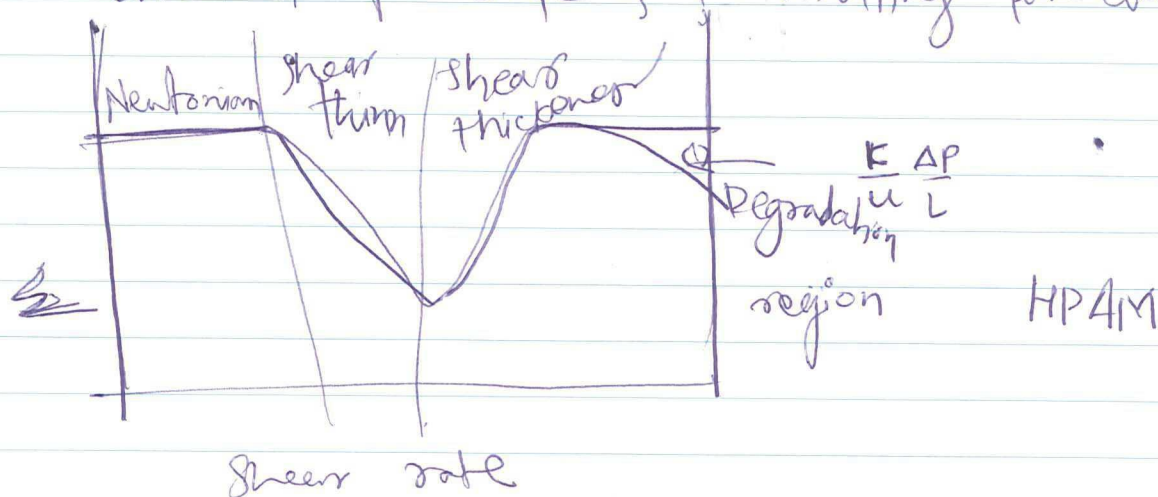 Newtonian
shear
thinn
shear
thickener
K ΔP
u L
Degradation
region
HPAM
Shear rate